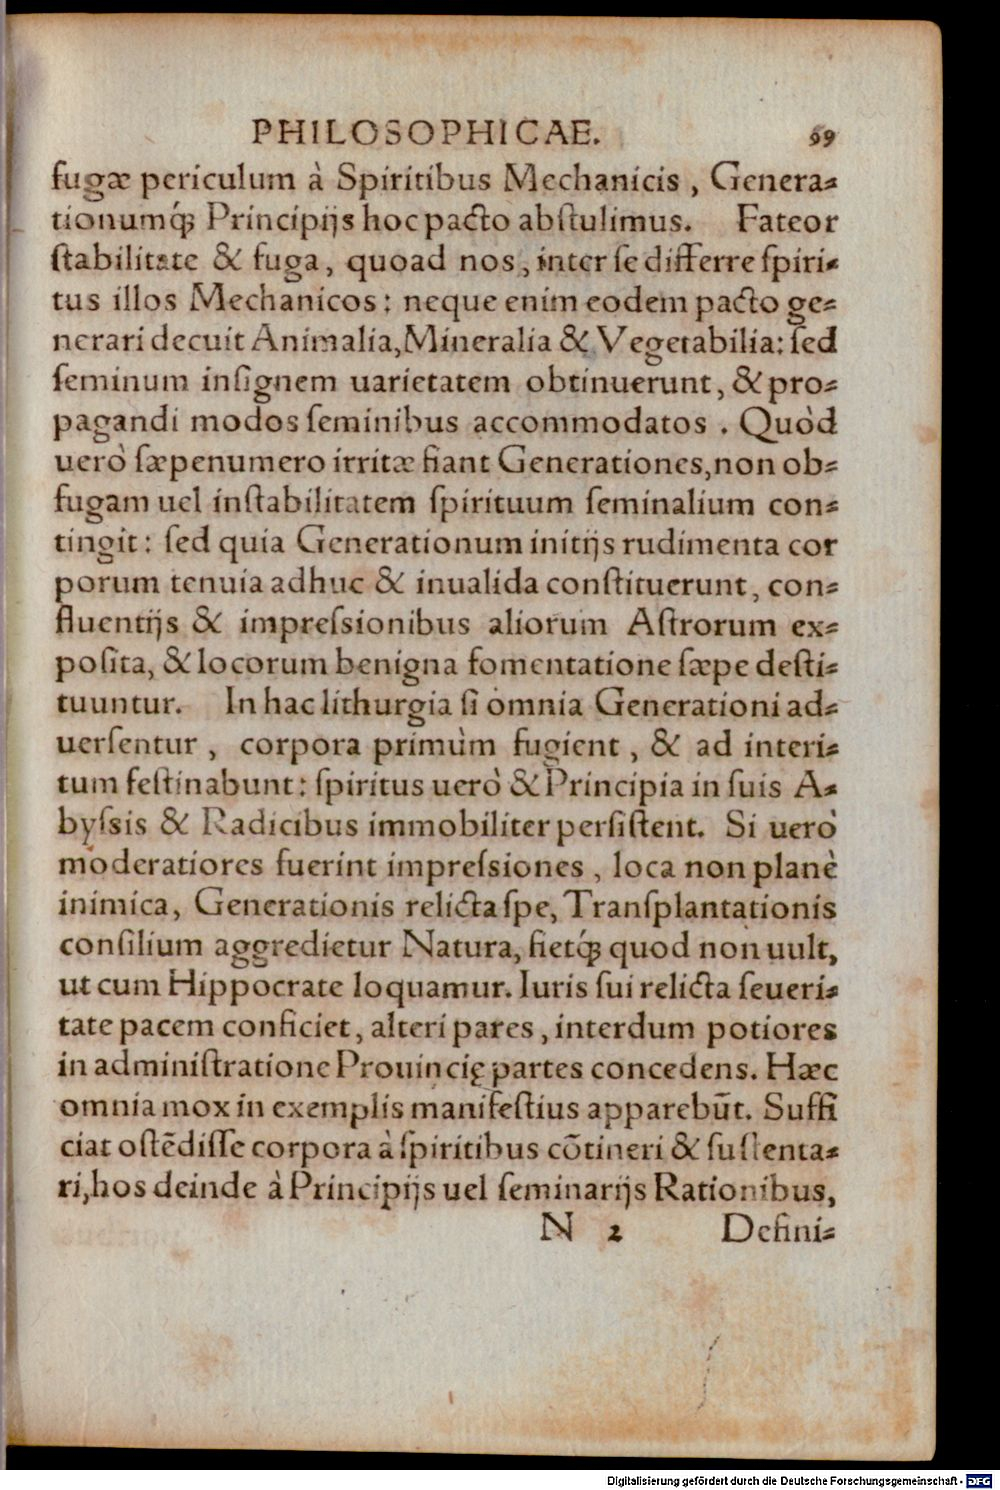 PHILOSOPHICAE. 99
fugæ periculum à Spiritibus Mechanicis, Genera-
tionumq́; Principijs hoc pacto abſtulimus. Fateor
ſtabilitate & fuga, quoad nos, inter ſe differre ſpiri-
tus illos Mechanicos: neque enim eodem pacto ge-
nerari decuit Animalia, Mineralia & Vegetabilia: ſed
ſeminum inſignem uarietatem obtinuerunt, & pro-
pagandi modos ſeminibus accommodatos. Quòd
uerò ſæpenumero irritæ fiant Generationes, non ob-
fugam uel inſtabilitatem ſpirituum ſeminalium con-
tingit: ſed quia Generationum initijs rudimenta cor
porum tenuia adhuc & inualida conſtituerunt, con-
fluentijs & impreſsionibus aliorum Aſtrorum ex-
poſita, & locorum benigna fomentatione ſæpe deſti-
tuuntur. In hac lithurgia ſi omnia Generationi ad-
uerſentur, corpora primùm fugient, & ad interi-
tum feſtinabunt: ſpiritus uerò & Principia in ſuis A-
byſsis & Radicibus immobiliter perſiſtent. Si uerò
moderatiores fuerint impreſsiones, loca non planè
inimica, Generationis relicta ſpe, Tranſplantationis
conſilium aggredietur Natura, fietq́; quod non uult,
ut cum Hippocrate loquamur. Iuris ſui relicta ſeueri-
tate pacem conficiet, alteri pares, interdum potiores
in adminiſtratione Prouincię partes concedens. Hæc
omnia mox in exemplis manifeſtius apparebūt. Suffi
ciat oſtēdiſſe corpora à ſpiritibus cōtineri & ſuſtenta-
ri, hos deinde à Principijs uel ſeminarijs Rationibus,
N 2 Defini-
Digitalisierung gefördert durch die Deutsche Forschungsgemeinschaft - DFG